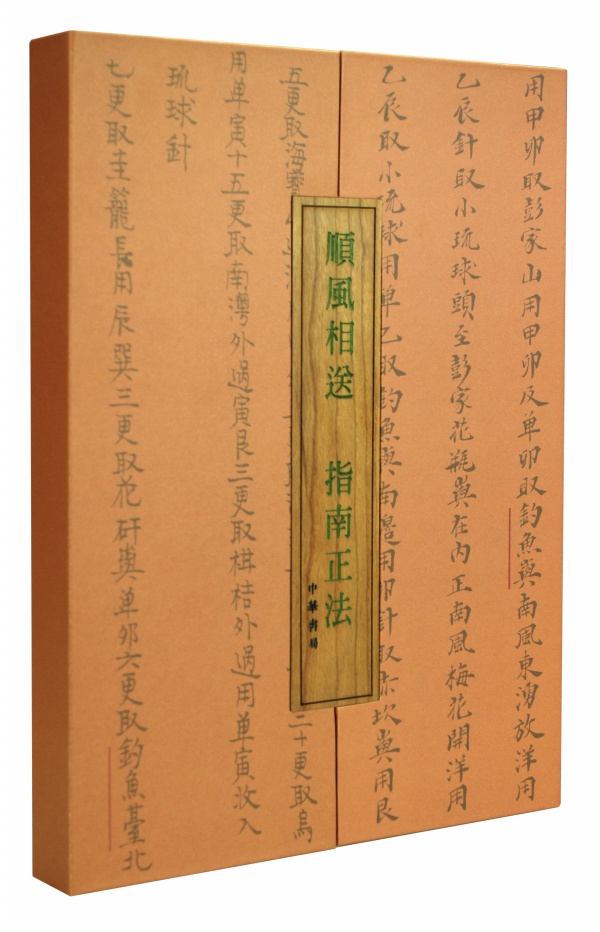 用甲卯取彭家山用甲卯及单卯取釣魚嶼南風東湧放洋用
乙辰針取小琉球頭至彭家花瓶嶼在内正南風梅花開洋用
乙辰取小琉球用单乙取釣魚嶼南邊用卯針取赤坎嶼用艮
順風相送 指南正法
中華書局
五更取海 二十更取烏
用单寅十五更取南灣外過寅艮三更取椇桔外過用单寅收入
琉球針
七更取圭籠長用辰巽三更取花矸嶼单卯六更取釣魚臺北